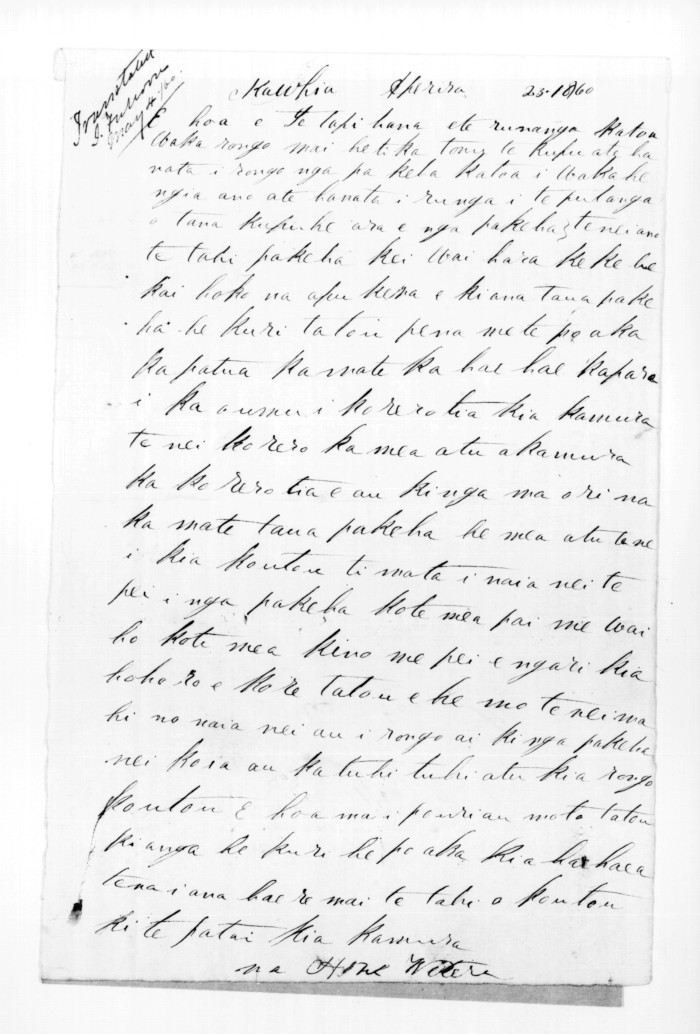 Translated
May 4/60
Kawhia Aperira 25-1860
E hoa e Te tapi hana ete runanga katoa
Waka rongo mai he ti ka tonu te kupu ate ha
nata i rongo nga pa keha katoa i Waka he
ngia ano ate hanata i runga i te putanga
o tana kupu he ara e nga pakeha tenei ano
te tahi pakeha kei Wai hara keke he
kai hoko na apu kena e kiana taua pake
ha he kuri tatou pena me te po aka
ka patua ka mate ka hae hae kapara
i ka aumu i korero tia kia kamura
te nei korero ka mea atu a kamura
ka korero tia e au ki nga ma ori na
ka mate taua pakeha he mea atu te ne
i kia koutou ti mata i naia nei te
pei i nga pakeha kote mea pai me wai
ho kote mea kino me pei e ngari kia
hoho ro e kore tatou e he mo te nei ma
hi no naia nei au i rongo ai ki nga pakeha
nei koia au ka tuhi tuhi atu kia rongo
koutou E hoa ma i pouri au moto tatou
ki anga he kuri he po aka kia hae haea
tena i ana hae re mai te tahi o koutou
ki te patai kia kamura
na Hone Wetere